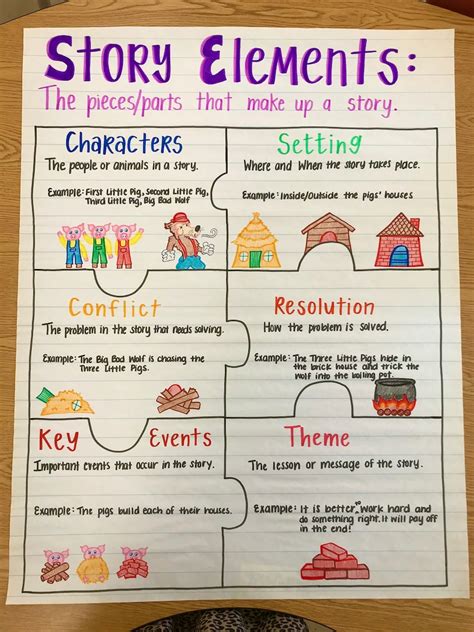 Story Elements:
The pieces/parts that make up a story.
Characters
The people or animals in a story.
Example: First Little Pig, Second Little Pig,
Third Little Pig, Big Bad Wolf
Setting
Where and When the story takes place.
Example: Inside/Outside the pigs' houses
Conflict
The problem in the story that needs solving.
Example: The Big Bad Wolf is chasing the
Three Little Pigs.
Resolution
How the problem is solved.
Example: The Three Little Pigs hide in
the brick house and trick the
wolf into the boiling pot.
Key Events
Important events that occur in the story.
Example: The pigs build each of their houses.
Theme
The lesson or message of the story.
Example: It is better to work hard and
do something right. It will pay off
in the end!